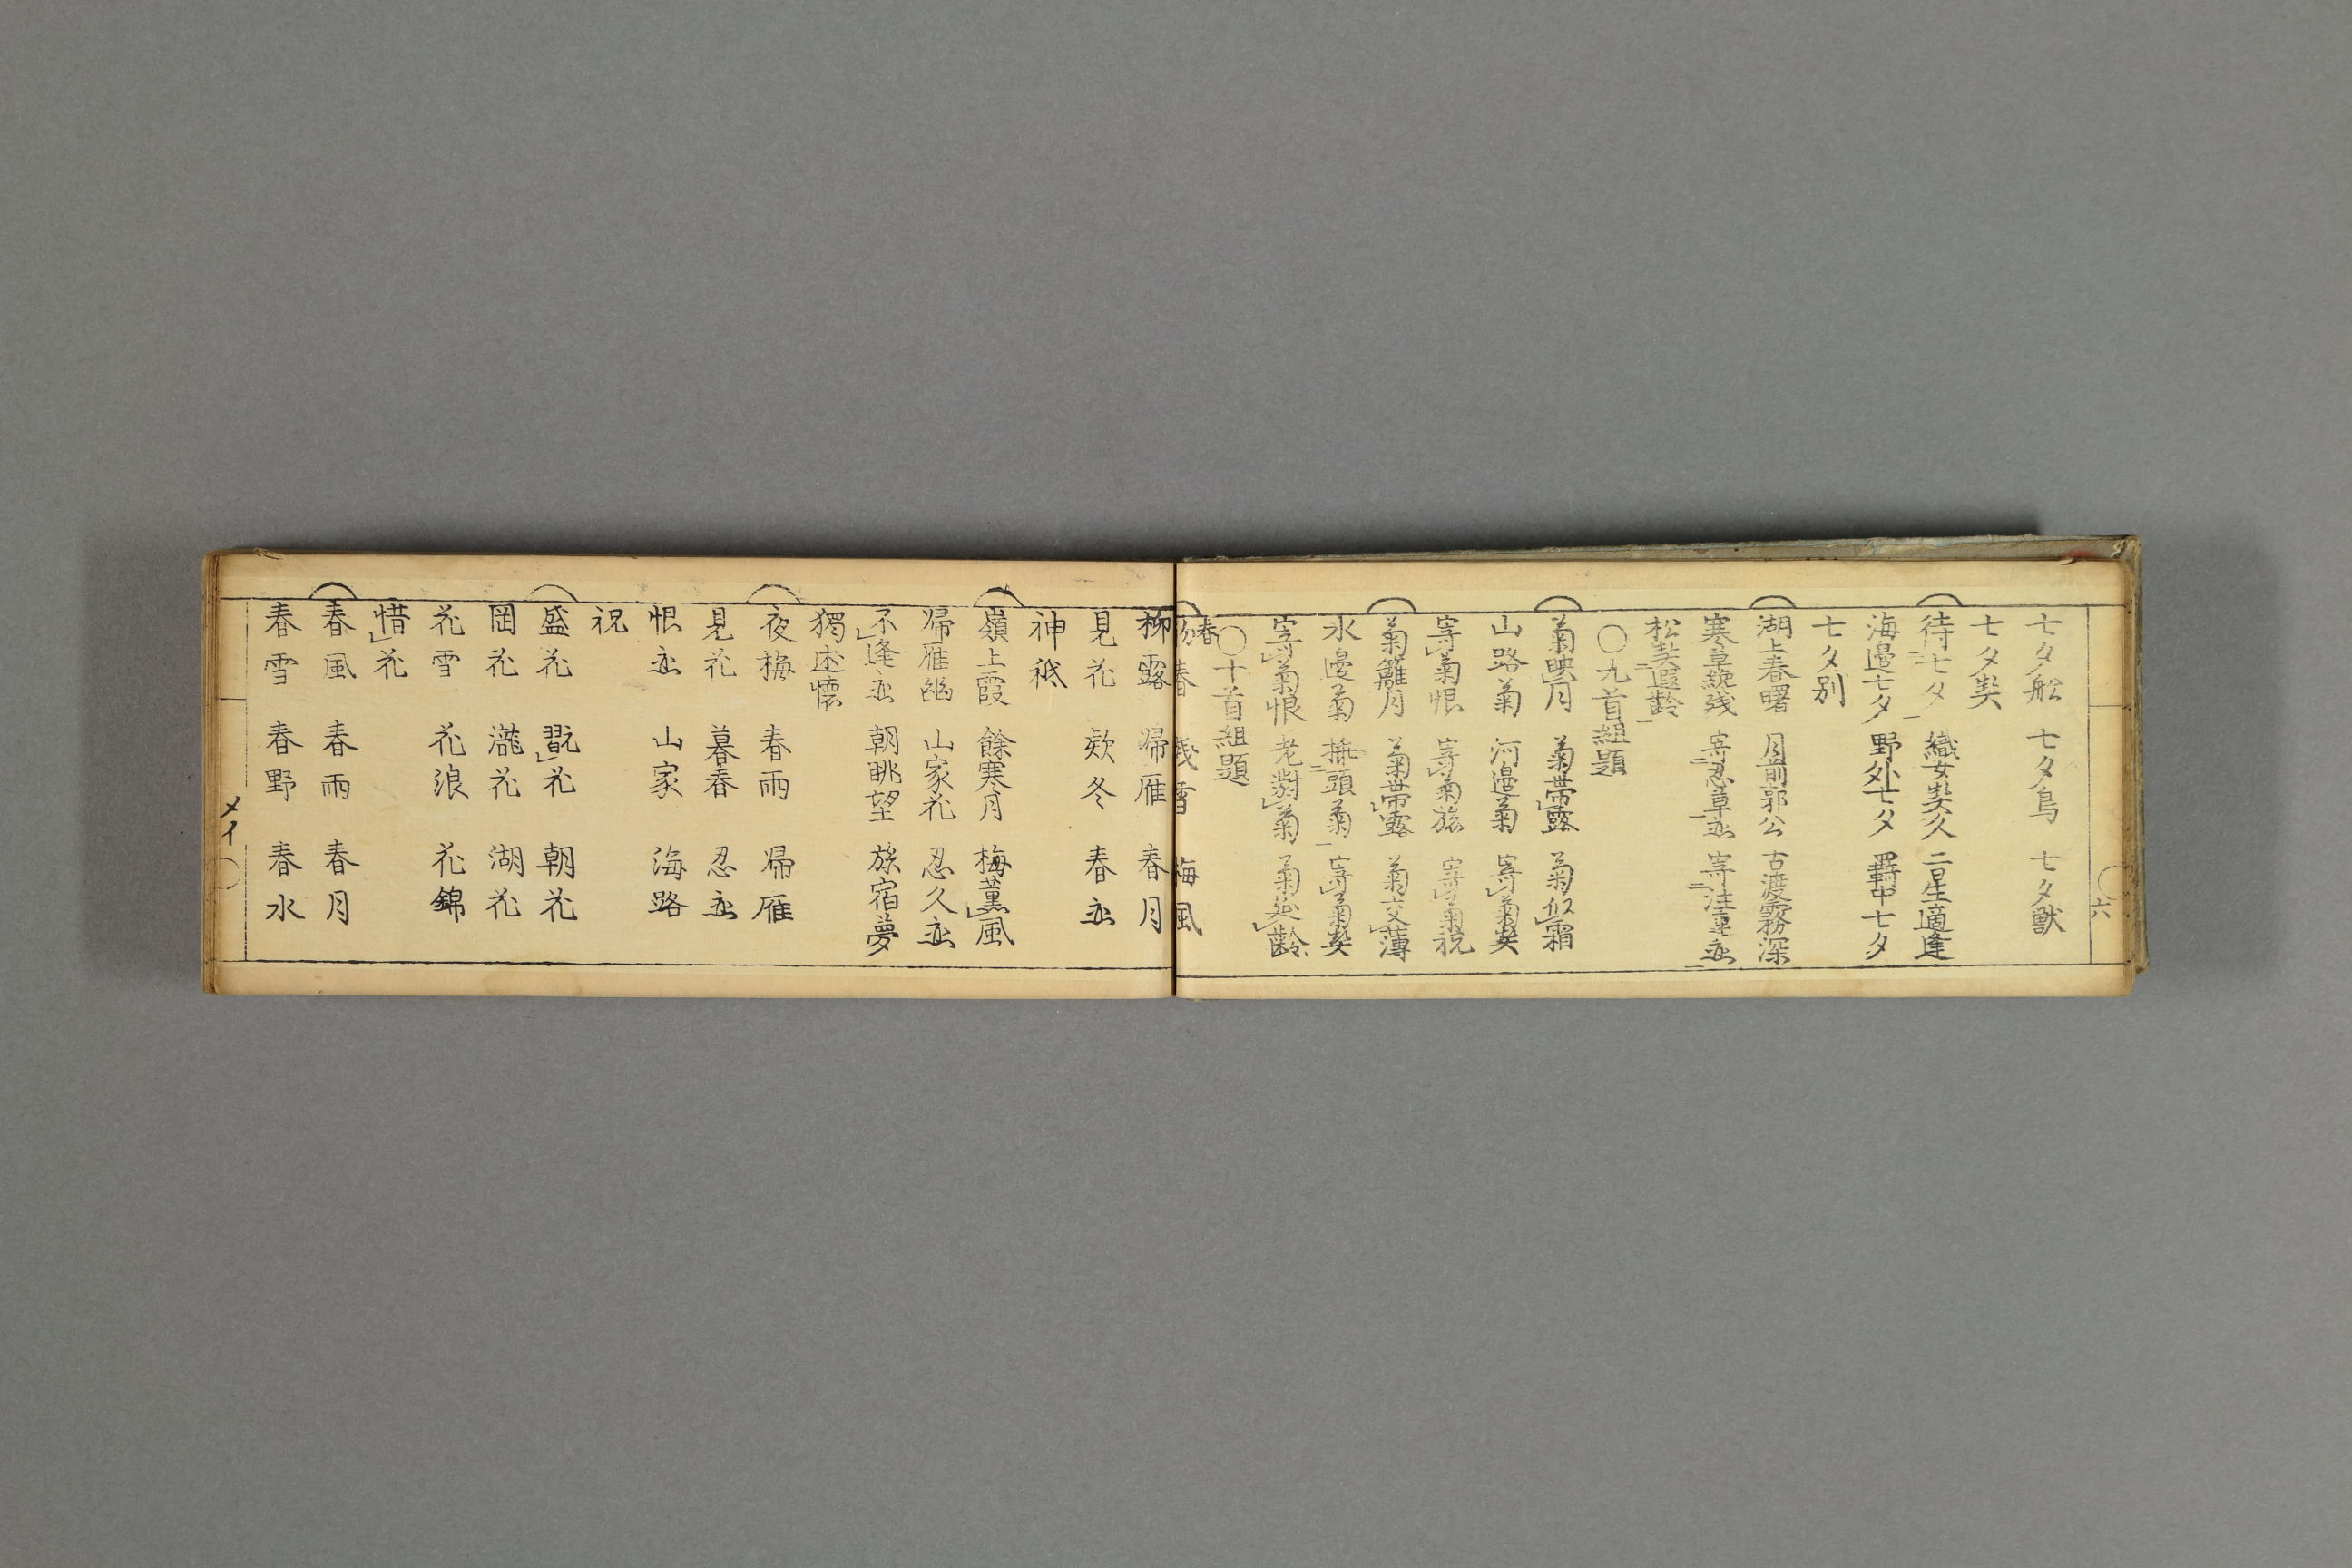 六
七夕舩 七夕鳥 七夕獣
七夕契
待七夕 織女契久 二星適逢
海邊七夕 野外七夕 羇中七夕
七夕別
湖上春曙 月前郭公 古渡霧深
寒草纔残 寄忍草恋 寄注連恋
松契遐齢
〇九首組題
菊映月 菊帯露 菊似霜
山路菊 河邊菊 寄菊契
寄菊恨 寄菊旅 寄菊祝
菊籬月 菊帯露 菊交薄
水邊菊 挿頭菊 寄菊契
寄菊恨 老對菊 菊延齢
〇十首組題
春
初春 残雪 梅風
柳露 帰雁 春月
見花 欵冬 春恋
神祇
嶺上霞 餘寒月 梅薫風
帰雁幽 山家花 忍久恋
不逢恋 朝眺望 旅宿夢
獨述懐
夜梅 春雨 帰雁
見花 暮春 忍恋
恨恋 山家 海路
祝
盛花 翫花 朝花
岡花 瀧花 湖花
花雪 花浪 花錦
惜花
春風 春雨 春月
春雪 春野 春水
メイ〇